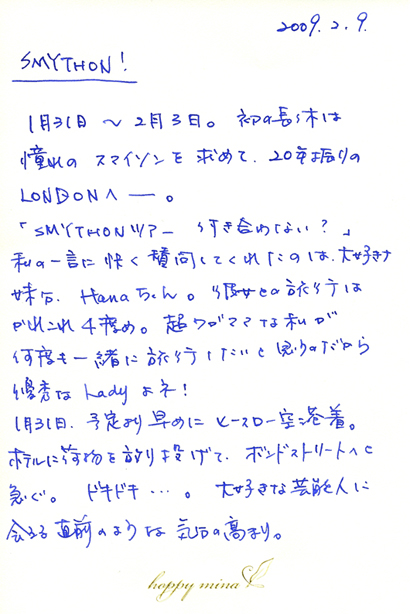 2009. 2. 9.
SMYTHON!
1月31日 〜 2月3日。 初の長い休は
憧れの スマイソンを 求めて、20年振りの
LONDONへ ー。
「SMYTHONツアー すき合わない?」
私の一言に快く賛同してくれたのは、大好きな
妹分、Hanaちゃん。彼女との旅行は
かれこれ4度め。超ワガママな私が
何度も一緒に旅行したいと思うのだから
優秀な Lady よネ!
1月31日、予定より早めにヒースロー空港着。
ホテルに荷物を放り投げて、ボンドストリートへと
急ぐ。 ドキドキ…。 大好きな芸能人に
会える直前のような 気分の高まり。
happy mina